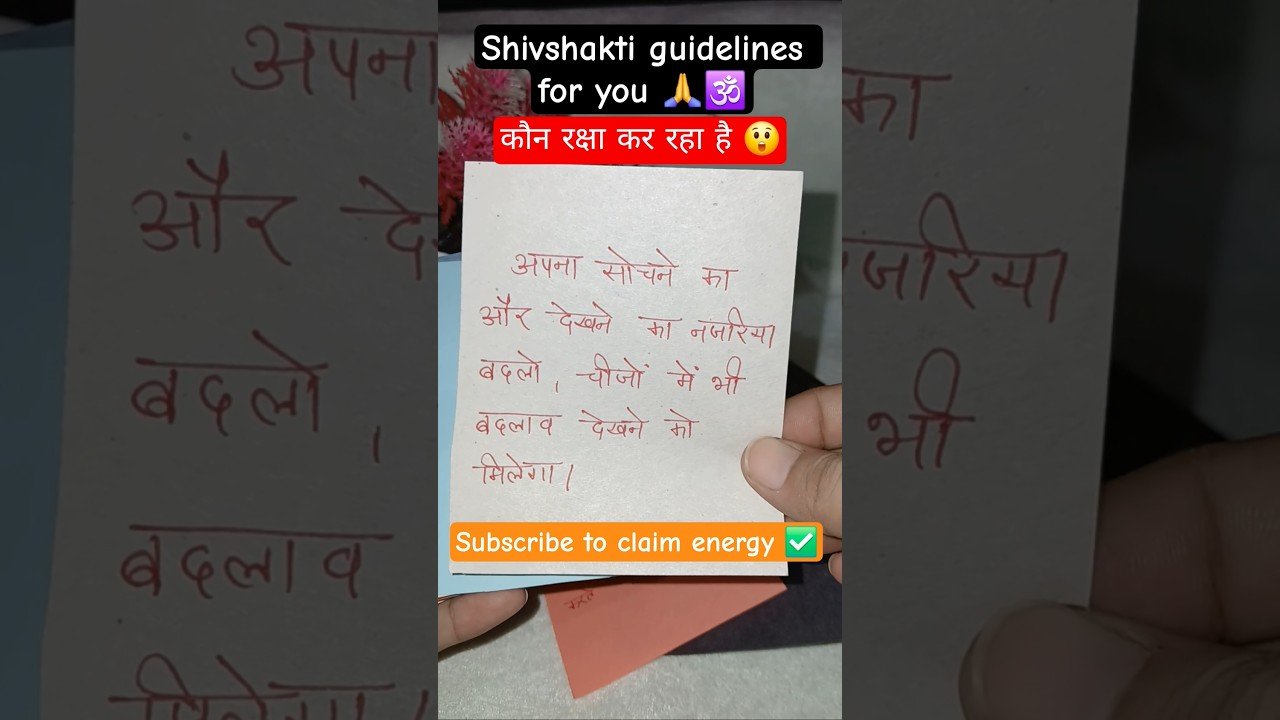 Shivshakti guidelines
for you 🙏🕉️
कौन रक्षा कर रहा है 😲
अपना सोचने का
और देखने का नजरिया
बदलो, चीजों में भी
बदलाव देखने को
मिलेगा।
Subscribe to claim energy ✅